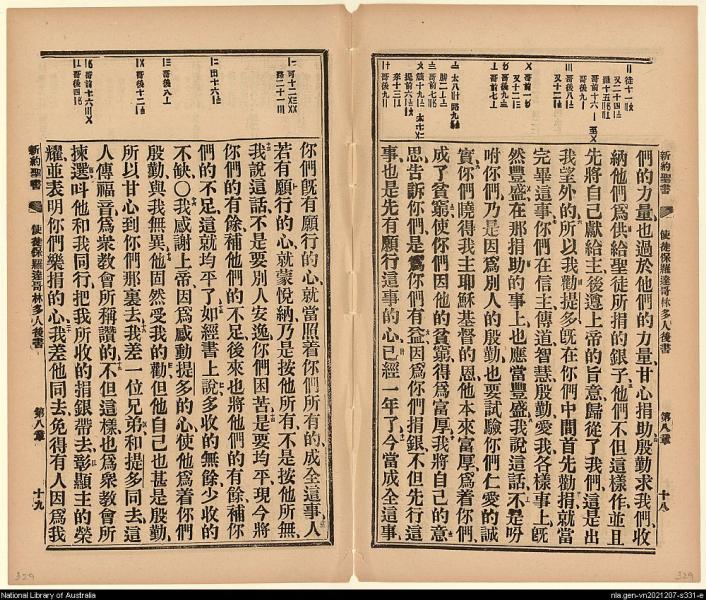 新約聖書
使徒保羅達哥林多人後書
第八章
十八
們的力量也過於他們的力量甘心捐助殷勤求我們收
納他們爲供給聖徒所捐的銀子他們不但這樣作並且
先將自己獻給主後遵上帝的旨意歸從了我們這是出
我望外的所以我勸提多旣在你們中間首先勸捐就當
完畢這事你們在信主傳道智慧殷勤愛我各樣事上旣
然豐盛在那捐助的事上也應當豐盛我說這話不是吩
咐你們乃是因爲別人的殷勤也要試驗你們仁愛的誠
實你們曉得我主耶穌基督的恩他本來富厚爲着你們
成了貧窮使你們因他的貧窮得爲富厚我將自己的意
思告訴你們是爲你們有益因爲你們捐銀不但先行這
事也是先有願行這事的心已經一年了今當成全這事
你們旣有願行的心就當照着你們所有的成全這事人
若有願行的心就蒙悅納乃是按他所有不是按他所無
我說這話不是要別人安逸你們困苦是要均平現今將
你們的有餘補他們的不足後來也將他們的有餘補你
們的不足這就均平了如經書上說多收的無餘少收的
不缺〇我感謝上帝因爲感動提多的心使他爲着你們
殷勤與我無異他固然受我的勸但他自己也甚是殷勤
所以甘心到你們那裏去我差一位兄弟和提多同去這
人傳福音爲衆敎會所稱讚的不但這樣也爲衆敎會所
揀選叫他和我同行把我所收的捐銀帶去彰顯主的榮
耀並表明你們樂捐的心我差他同去免得有人因爲我
新約聖書
使徒保羅達哥林多人後書
第八章
十九
329
329
National Library of Australia
nla.gen-vn2021207-s331-e